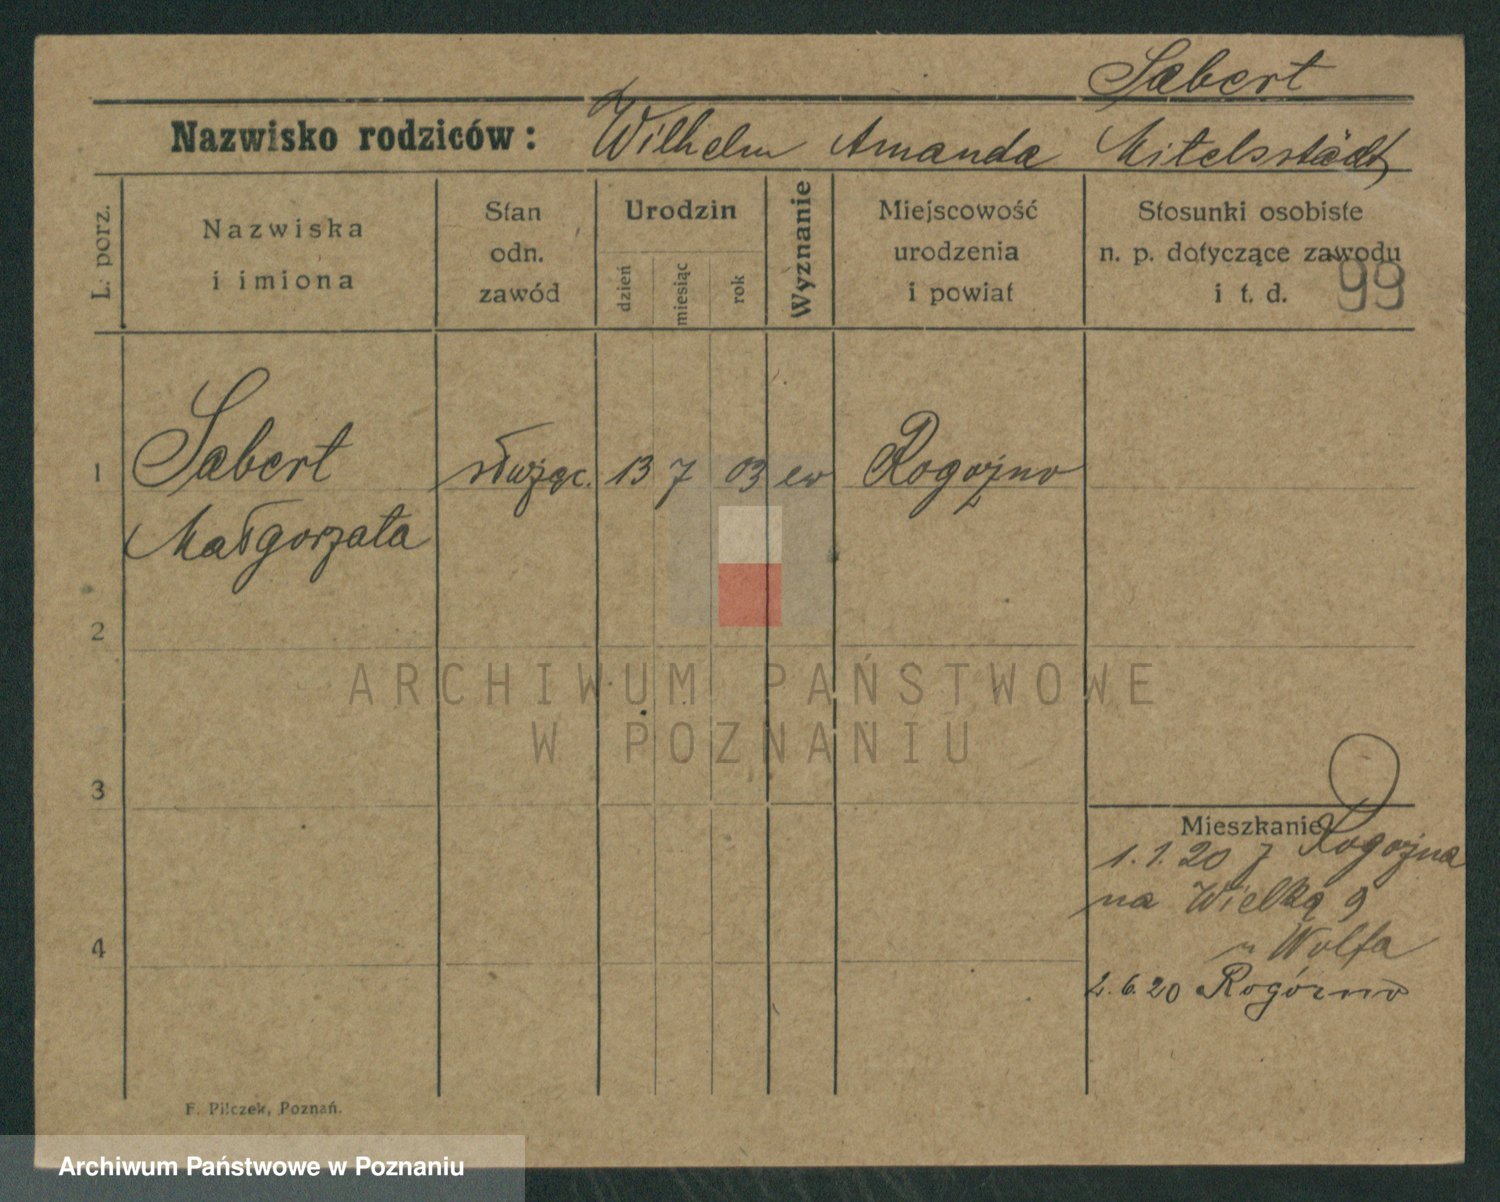 Sabert
Nazwisko rodziców: Wilhelm Amanda Mitelsstädt
L. porz.
Nazwiska
i imiona
Stan
odn.
zawód
Urodzin
dzień
miesiąc
rok
Wyznanie
Miejscowość
urodzenia
i powiat
Stosunki osobiste
n. p. dotyczące zawodu
i t. d.
99
1 Sabert służąc. 13 7 03 ew Rogoźno
Małgorzata
2
3
4
ARCHIWUM PAŃSTWOWE
W POZNANIU
Mieszkanie
1.1.20 z Rogoźna
na Wielką 9
u Wolfa
2.6.20 Rogóźno
F. Pilczek, Poznań.
Archiwum Państwowe w Poznaniu